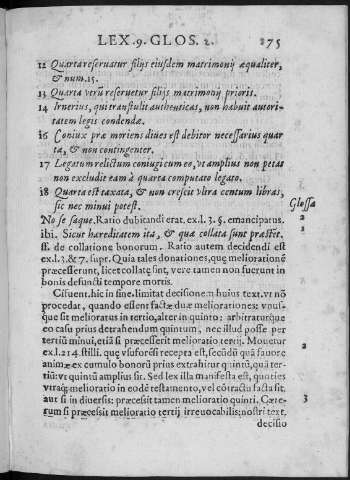 LEX.9.GLOS. 2. 275
12 Quarta reseruatur filijs eiusdem matrimonij æqualiter,
& num.15.
13 Quarta vtrũ reseruetur filijs matrimonij prioris.
14 Irnerius, qui transtulit authenticas, non habuit autori-
tatem legis condendæ.
16 Coniux præ moriens diues est debitor necessarius quar
tæ, & non contingenter.
17 Legatum relictum coniugi cum eo, vt amplius non petat
non excludit eam à quarta computato legato.
18 Quarta est taxata, & non crescit vltra centum libras,
sic nec minui potest.
Glossa
No se saque. Ratio dubitandi erat. ex.l. 3. §. emancipatus.
2
ibi. Sicut hæreditatem ita, & quæ collata sunt præstet.
1
ff. de collatione bonorum. Ratio autem decidendi est
ex.l.3.&7. supr. Quia tales donationes, quę meliorationẽ
præcesserunt, licet collatę sint, vere tamen non fuerunt in
bonis defuncti tempore mortis.
Cifuent. hic in fine. limitat decisionem huius text. vt nõ
procedat, quando essent factæ duæ meliorationes: vpus-
que sit melioratus in tertio, alter in quinto: arbitraturque
eo casu prius detrahendum quintum, nec illud posse per
tertiũ minui, etiã si præcesserit melioratio tertij. Mouetur
ex.l.214. stilli. quę vsu forẽsi recepta est, secũdũ quã fauore
2
animæ ex cumulo bonorũ prius extrahitur quintũ, quã ter-
tiũ: vt quintũ amplius sit. Sed lex illa manifesta est, quoties
vtraq; melioratio in eodẽ testamento, vel cõtractu facta sit,
aut si in diuersis: præcessit tamen melioratio quinti. Cæte-
3
rum si præcessit melioratio tertij irreuocabilis; nostri text.
decisio